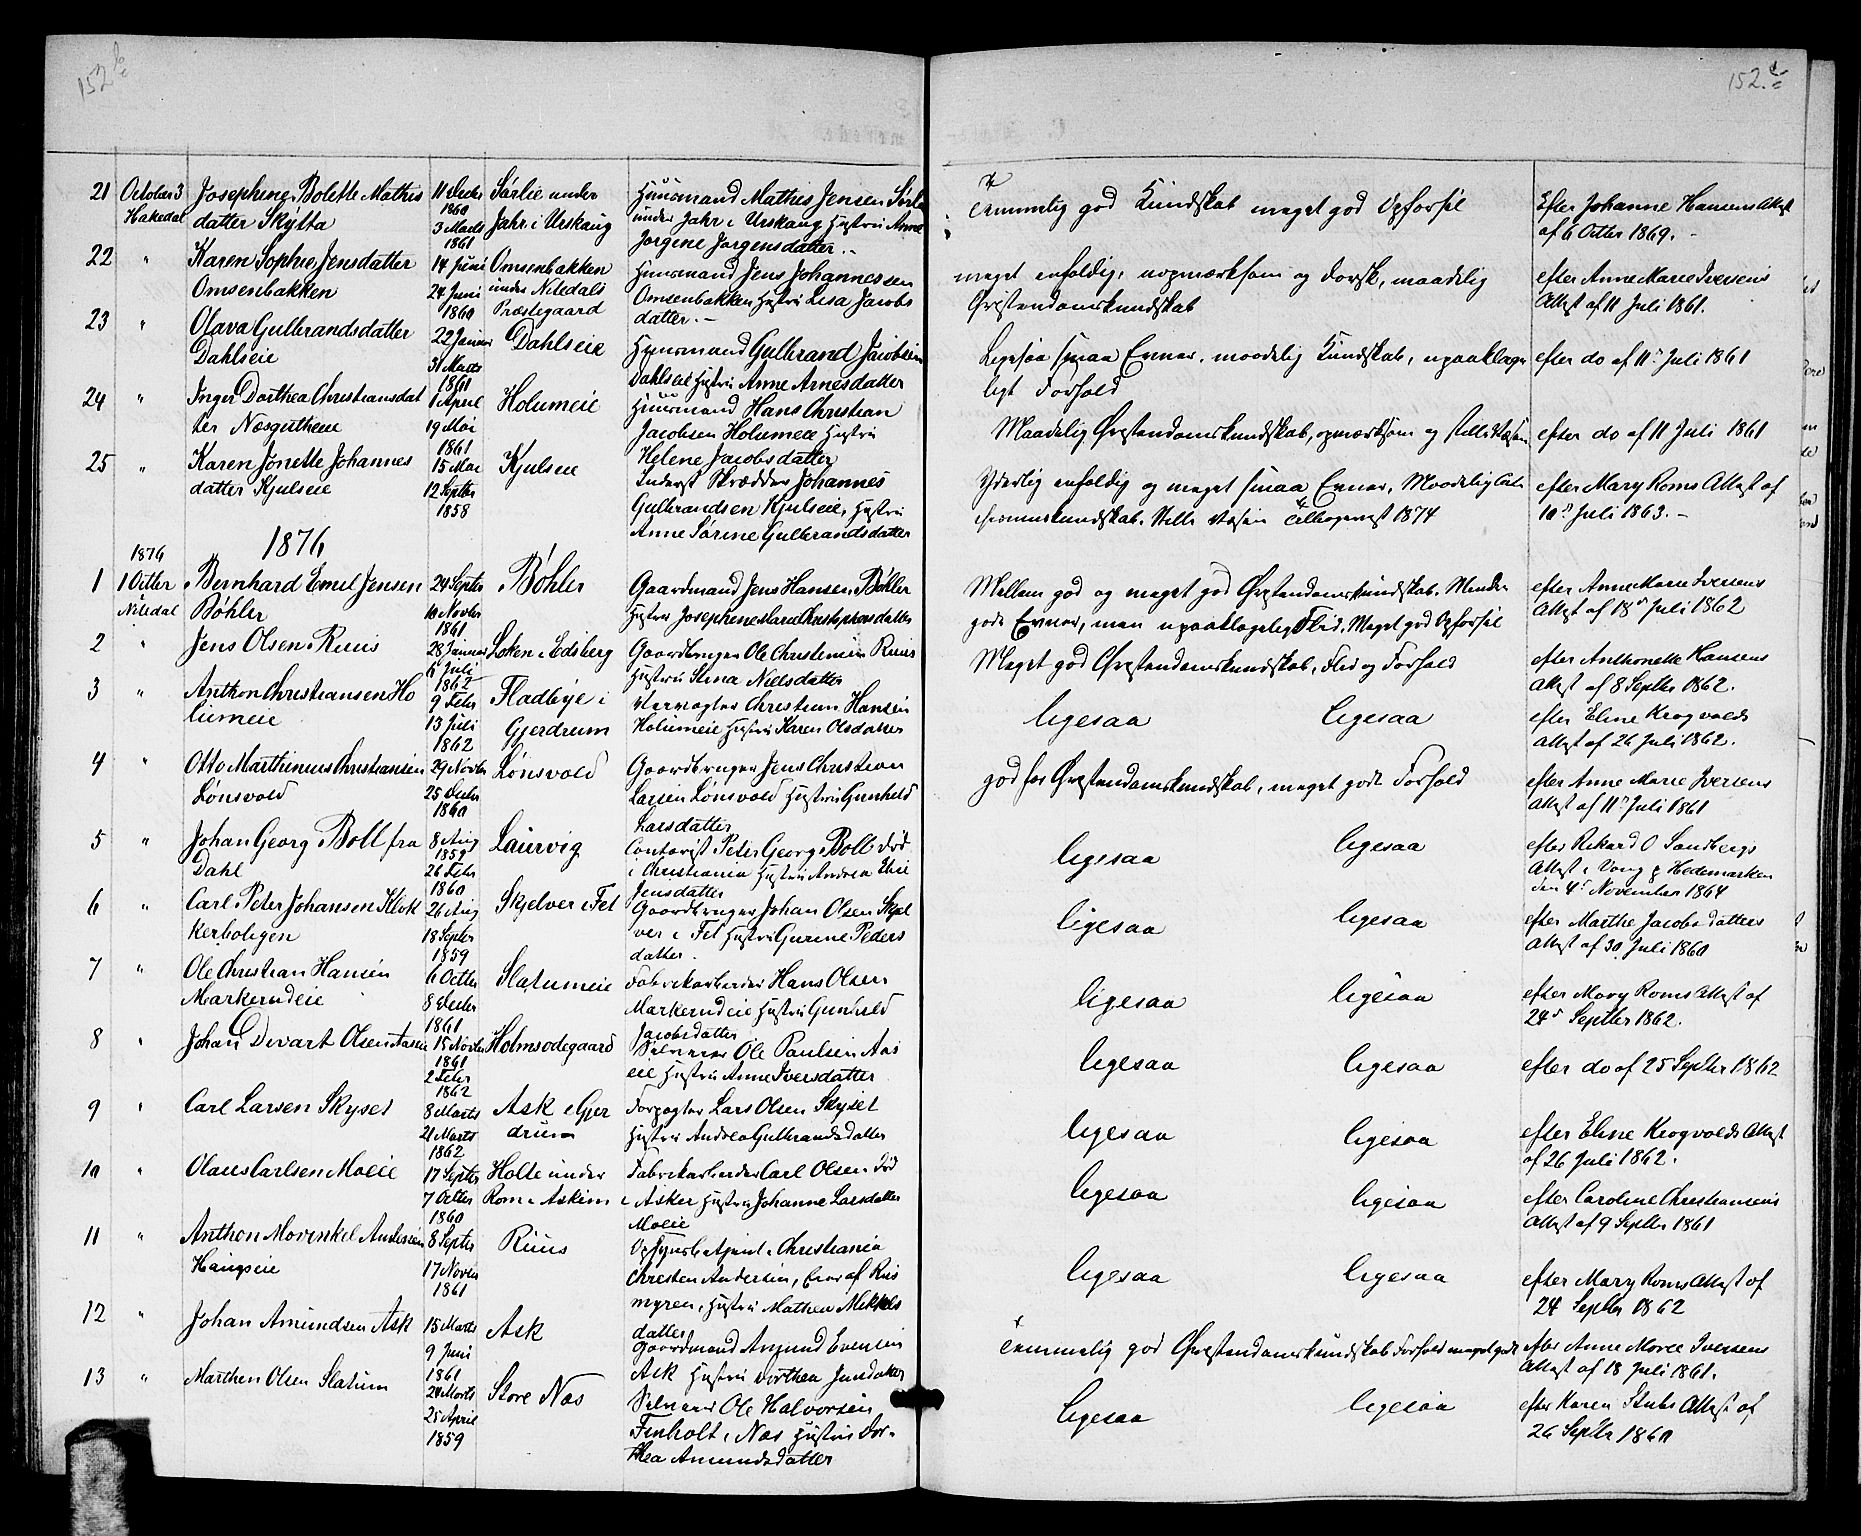 152 b
152.c
21 October 3 Josephine Bolette Mathis 11 Decbr Sørlie under Huusmand Mathis Jensen Sørlie Temmelig god Kundskab meget god Opførsel Efter Johanne Hansens Attest
Hakedal datter Skytta 1860 3 Marts 1861 Jahr i Urskaug under Jahr i Urskaug Hustru Anne af 6 Octbr 1869. -
Jørgene Jørgensdatter. -
22 " Karen Sophie Jensdatter 14 Juni Omsenbakken Huusmand Jens Johannessen meget enfoldig, uopmærksom og dorsk, maadelig efter Anne Marie Iversens
Omsenbakken 24 Juni 1860 under Nitedals Præstegaard Omsenbakken Hustru Lisa Jacobs Christendomskundskab Attest af 11 Juli 1861.
datter. -
23 " Olava Gulbrandsdatter 22 Januar Dahlseie Huusmand Gulbrand Jacobsen Ligesaa smaa Evner, maadelig Kundskab, upaaklage efter do af 11 Juli 1861
Dahlseie 31 Marts 1861 Dahlseie Hustru Anne Arnesdatter ligt Forhold
24 " Inger Dorthea Christiansdat 1 April Holumeie Huusmand Hans Christian Maadelig Christendomskundskab, opmærksom og stille Væsen efter do af 11 Juli 1861
ter Næsguthene 19 Mai 1861 Jacobsen Holumeie Hustru
Helene Jacobsdatter
25 " Karen Jonette Johannes 15 Mai Kjulseie Inderst Skrædder Johannes Yderlig enfoldig og meget smaa Evner, Maadelig Cate efter Mary Roms Attest af
datter Kjulseie 12 Septbr 1858 Gulbrandsen Kjulseie, Hustru chismuskundskab. Stille Væsen Tilbagevist 1874 10 Juli 1863. -
Anne Sørine Gulbrandsdatter
1876
1876
1 1 Octbr Bernhard Emil Jensen 24 Septbr Bøhler Gaardmand Jens Hansen Bøhler Mellem god og meget god Christendomskundskab. Mindre efter Anne Marie Iversens
Nitedal Bøhler 10 Novbr 1861 Hustru Josephine Marie Christophersdatter gode Evner, men upaaklagelig Flid. Meget god Opførsel Attest af 18 Juli 1862
2 " Jens Olsen Ruus 28 Januar Løken i Eidsberg Gaardbruger Ole Christensen Ruus Meget god Christendomskundskab, Flid og Forhold efter Anthonette Hansens
6 Juli 1862 Hustru Stina Nielsdatter Attest af 8 Septbr 1862.
3 " Anthon Christiansen Ho 9 Febr Fladbye i Christian Hansen ligesaa ligesaa efter Eline Krogvolds
lumeie 13 Juli 1862 Gjerdrum Holumeie Hustru Karen Olsdatter Attest af 26 Juli 1862.
4 " Otto Marthinius Christiansen 29 Novbr Lønsvold Gaardbruger Jens Christian god Christendomskundskab, meget godt Forhold efter Anne Marie Iversens
Lønsvold 25 Decbr 1860 Larsen Lønsvold Hustru Gunhild Attest af 11 Juli 1861
Larsdatter
5 " Johan Georg Boll fra 8 Aug 1859 Laurvig Contorist Peter Georg Boll død ligesaa ligesaa efter Rikard O Sandbergs
Dahl 26 Febr 1860 i Christiania Hustru Andrea Elise Attest i Vang p Hedemarken
Jensdatter den 4 November 1864
6 " Carl Peter Johansen Klok 26 Aug Skjelver i Fet Gaardbruger Johan Olsen Skjel ligesaa ligesaa efter Marthe Jacobsdatters
kerboligen 18 Septbr 1859 ver i Fet Hustru Gurine Peders Attest af 30 Juli 1860
datter.
7 " Ole Christian Hansen 6 Octbr Slatumeie Fabrikarbeider Hans Olsen ligesaa ligesaa efter Mary Roms Attest af
Markerudeie 8 Decbr 1861 Markerudeie Hustru Gunhild 24 Septbr 1862.
Jacobsdatter
8 " Johan Devart Olsen Aaseie 15 Novbr 1861 Holmsødegaard Selveier Ole Paulsen Aas ligesaa ligesaa efter do af 25 Septbr 1862
2 Febr 1862 eie Hustru Anne Iversdatter
9 " Carl Larsen Skyset 8 Marts Ask i Gjer Forpagter Lars Olsen Skyset ligesaa ligesaa efter Eline Krogvolds Attest
21 Marts 1862 drum Hustru Andrea Gulbrandsdatter af 26 Juli 1862.
10 " Olaus Carlsen Moeie 17 Septbr Holte under Fabrikarbeider Carl Olsen død ligesaa ligesaa efter Caroline Christiansens
7 Octbr 1860 Rom i Askim i Asker Hustru Johanne Larsdatter Attest af 9 Septbr 1861
Moeie
11 " Anthon Morinkel Andersen 8 Septbr Ruus Christiania ligesaa ligesaa efter Mary Roms Attest af
Haugseie 17 Novbr 1861 Christen Andersen, Eier af Rus 24 Septbr 1862
myren, Hustru Mathea Mikkels
datter
12 " Johan Amundsen Ask 15 Marts Ask Gaardmand Amund Evensen Temmelig god Christendomskundskab Forhold meget godt efter Anne Marie Iversens
9 Juni 1861 Ask Hustru Dorthea Jensdatter Attest af 18 Juli 1861.
13 " Marthin Olsen Slatum 24 Marts Store Næs Selveier Ole Halvorsen ligesaa ligesaa efter Karen Stubs Attest af
25 April 1859 Finholt i Næs Hustru Dor- 26 Septbr 1860
thea Amundsdatter